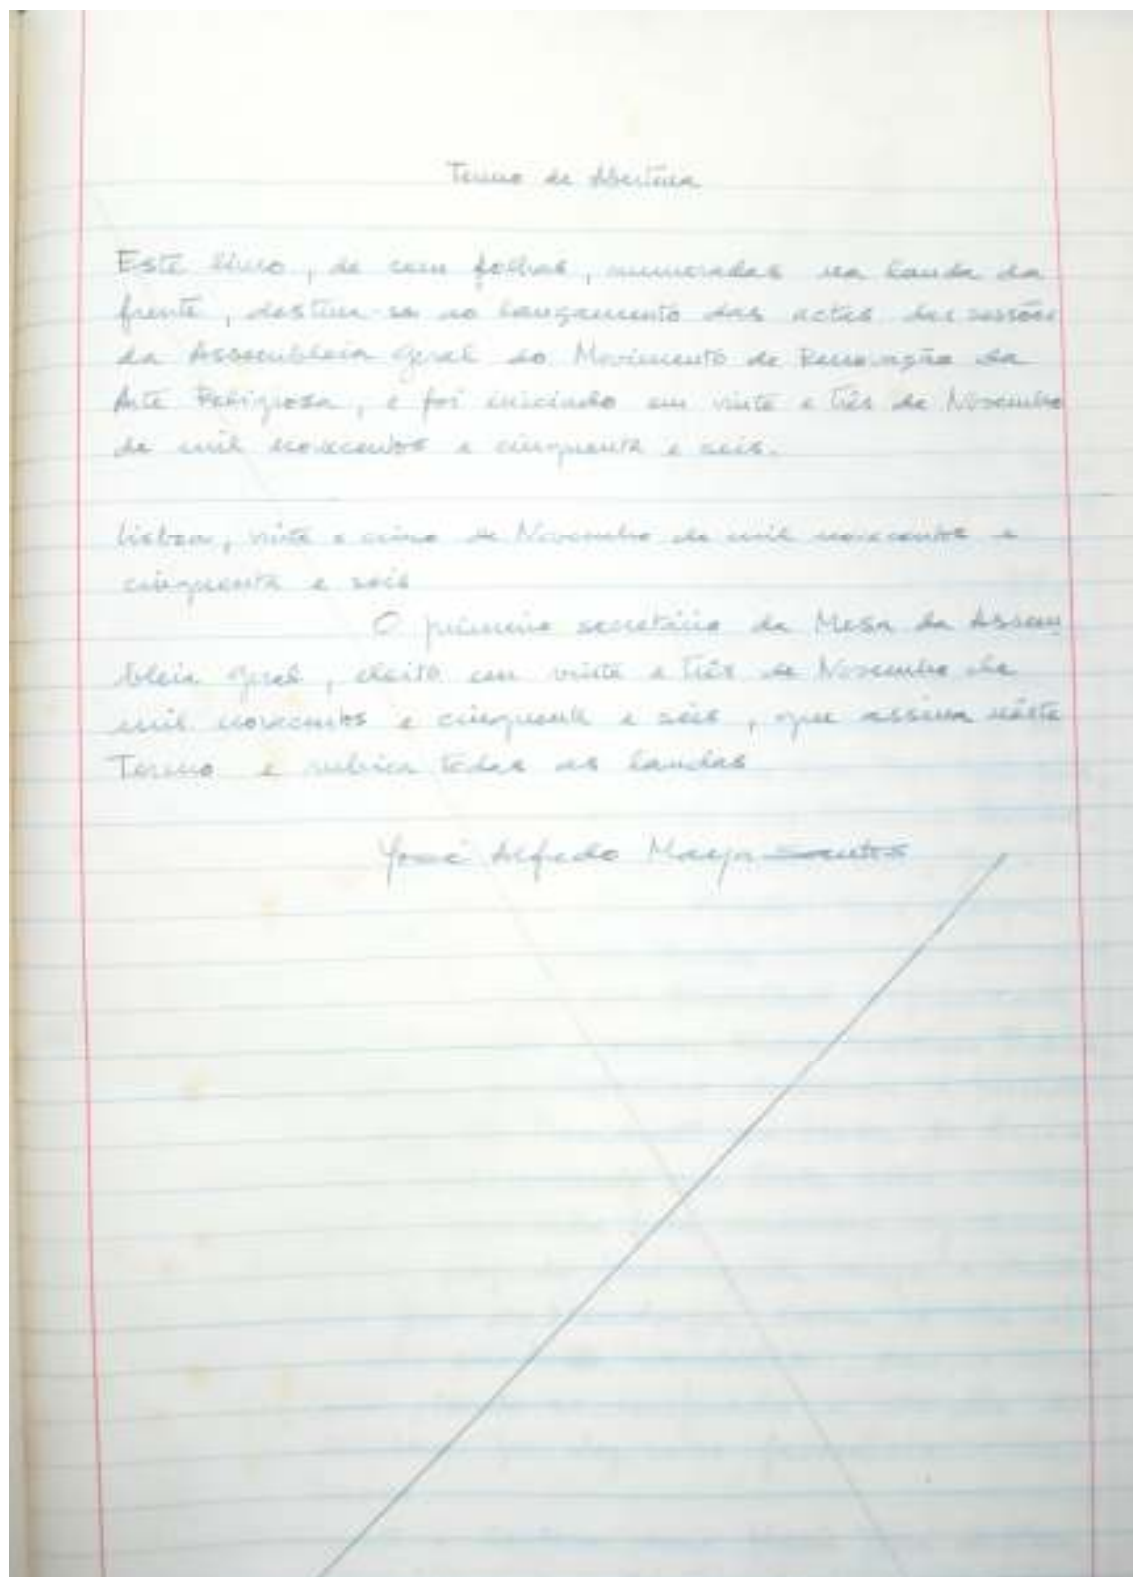 Termo de Abertura
Este livro, de cem folhas, numeradas na lauda da
frente, destina-se ao lançamento das actas das sessões
da Assembleia Geral do Movimento de Renovação da
Arte Religiosa, e foi iniciado em vinte e três de Novembro
de mil novecentos e cinquenta e seis.
Lisboa, vinte e cinco de Novembro de mil novecentos e
cinquenta e seis
O primeiro secretário da Mesa da Assem
bleia Geral, eleito em vinte e três de Novembro de
mil novecentos e cinquenta e seis, que assina êste
Termo e rubrica todas as laudas
José Alfredo Santos